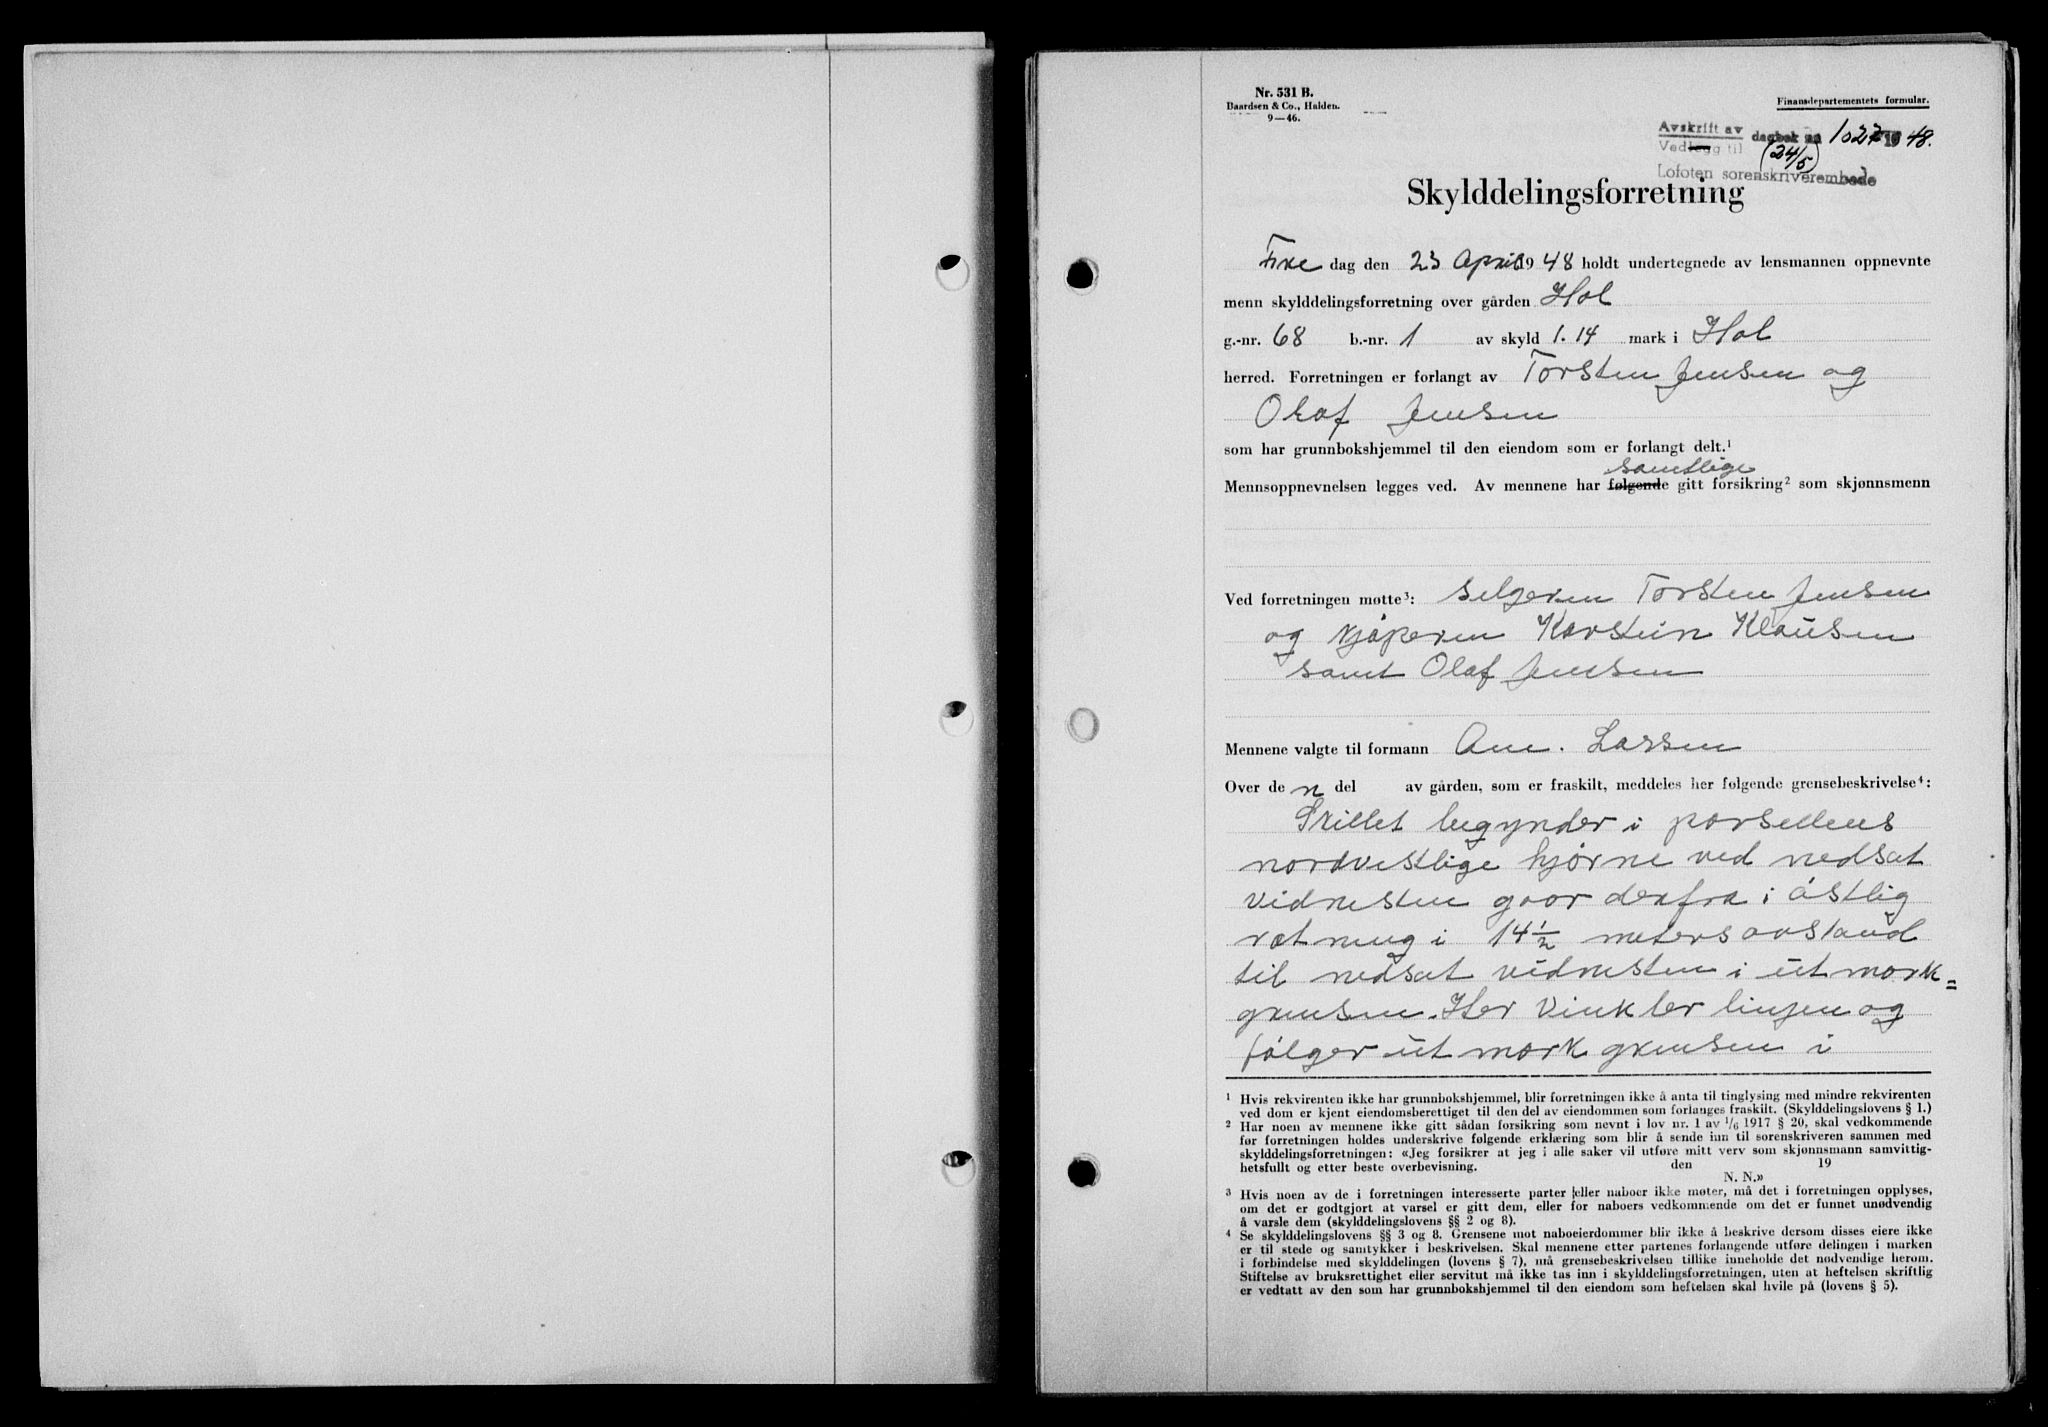 Nr. 531 B.
Baardsen & Co., Halden.
9—46.
Finansdepartementets formular.
Avskrift av dagbok nr 1022 19 48.
Vedlegg til (24/5)
Lofoten sorenskriverembede
Skylddelingsforretning
Fredag den 23 April 1948 holdt undertegnede av lensmannen oppnevnte
menn skylddelingsforretning over gården Hol
g.-nr. 68 b.-nr. 1 av skyld 1.14 mark i Hol
herred. Forretningen er forlangt av Torsten Jensen og
Olaf Jensen
som har grunnbokshjemmel til den eiendom som er forlangt delt.¹
samtlige
Mennsoppnevnelsen legges ved. Av mennene har følgende gitt forsikring² som skjønnsmenn
Ved forretningen møtte³: selgeren Torsten Jensen
og kjøperen Karstein Klausen
samt Olaf Jensen
Mennene valgte til formann Ane. Larsen
Over den del av gården, som er fraskilt, meddeles her følgende grensebeskrivelse⁴:
Skillet begynder i parsellens
nordvestlige hjørne ved nedsat
vidnesten gaar derfra i østlig
retning i 14 ½ meters avstand
til nedsat vidnesten i utmark=
grensen. Her vinkler linjen og
følger utmarkgrensen i
¹ Hvis rekvirenten ikke har grunnbokshjemmel, blir forretningen ikke å anta til tinglysing med mindre rekvirenten
ved dom er kjent eiendomsberettiget til den del av eiendommen som forlanges fraskilt. (Skylddelingslovens § 1.)
² Har noen av mennene ikke gitt sådan forsikring som nevnt i lov nr. 1 av 1/6 1917 § 20, skal vedkommende
før forretningen holdes underskrive følgende erklæring som blir å sende inn til sorenskriveren sammen med
skylddelingsforretningen: «Jeg forsikrer at jeg i alle saker vil utføre mitt verv som skjønnsmann samvittig-
hetsfullt og etter beste overbevisning. den 19
N. N.»
³ Hvis noen av de i forretningen interesserte parter eller naboer ikke møter, må det i forretningen opplyses,
om det er godtgjort at varsel er gitt dem, eller for naboers vedkommende om det er funnet unødvendig
å varsle dem (skylddelingslovens §§ 2 og 8).
⁴ Se skylddelingslovens §§ 3 og 8. Grensene mot naboeierdommer blir ikke å beskrive dersom disses eiere ikke
er til stede og samtykker i beskrivelsen. Skal mennene etter partenes forlangende utføre delingen i marken
i forbindelse med skylddelingen (lovens § 7), må grensebeskrivelsen tillike inneholde det nødvendige herom.
Stiftelse av bruksrettighet eller servitut må ikke tas inn i skylddelingsforretningen, uten at heftelsen skriftlig
er vedtatt av den som har grunnbokshjemmel til den eiendom som heftelsen skal hvile på (lovens § 5).